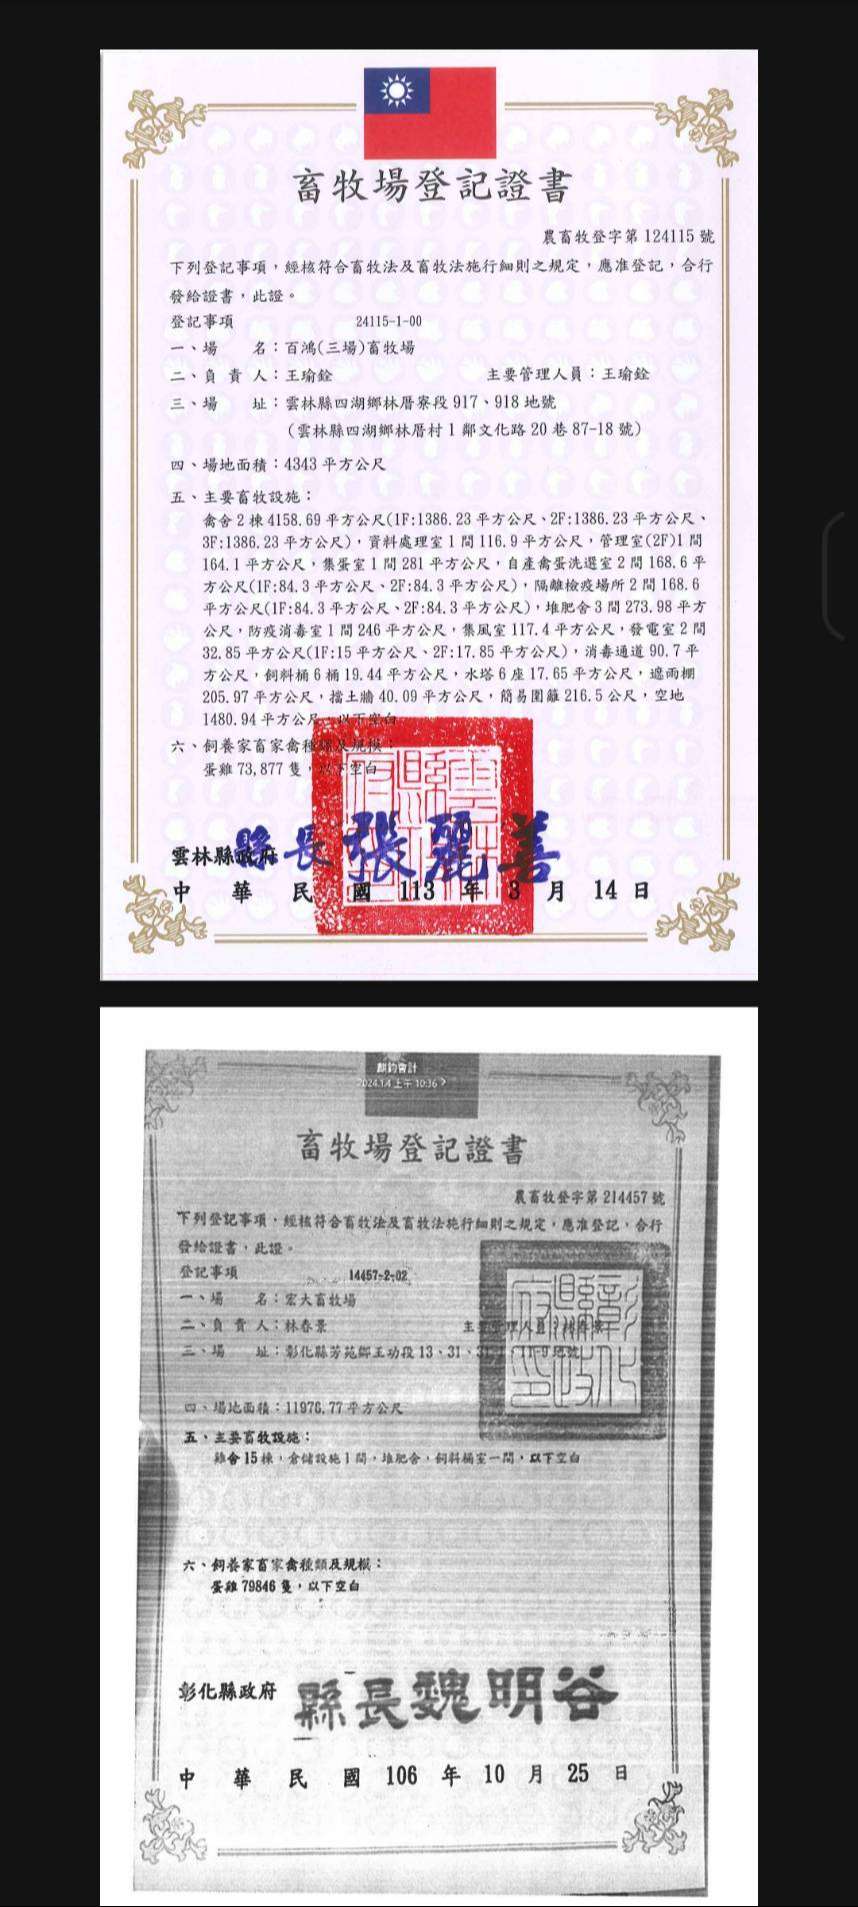 畜牧場登記證書
農畜牧登字第 124115 號
下列登記事項，經核符合畜牧法及畜牧法施行細則之規定，應准登記，合行
發給證書，此證。
登記事項 24115-1-00
一、場 名：百鴻(三場)畜牧場
二、負 責 人：王瑜銓 主要管理人員：王瑜銓
三、場 址：雲林縣四湖鄉林厝寮段 917、918 地號
（雲林縣四湖鄉林厝村 1 鄰文化路 20 巷 87-18 號）
四、場地面積：4343 平方公尺
五、主要畜牧設施：
禽舍 2 棟 4158.69 平方公尺(1F:1386.23 平方公尺、2F:1386.23 平方公尺、
3F:1386.23 平方公尺)，資料處理室 1 間 116.9 平方公尺，管理室(2F)1 間
164.1 平方公尺，集蛋室 1 間 281 平方公尺，自產禽蛋洗選室 2 間 168.6 平
方公尺(1F:84.3 平方公尺、2F:84.3 平方公尺)，隔離檢疫場所 2 間 168.6
平方公尺(1F:84.3 平方公尺、2F:84.3 平方公尺)，堆肥舍 3 間 273.98 平方
公尺，防疫消毒室 1 間 246 平方公尺，集風室 117.4 平方公尺，發電室 2 間
32.85 平方公尺(1F:15 平方公尺、2F:17.85 平方公尺)，消毒通道 90.7 平
方公尺，飼料桶 6 桶 19.44 平方公尺，水塔 6 座 17.65 平方公尺，遮雨棚
205.97 平方公尺，擋土牆 40.09 平方公尺，簡易圍籬 216.5 公尺，空地
1480.94 平方公尺，以下空白
六、飼養家畜家禽種類及規模：
蛋雞 73,877 隻，以下空白
雲林縣政府 縣長張麗善
中 華 民 國 113 年 3 月 14 日
麒鈞會計
2024.1.4 上午 10:36
畜牧場登記證書
農畜牧登字第 214457 號
下列登記事項，經核符合畜牧法及畜牧法施行細則之規定，應准登記，合行
發給證書，此證。
登記事項 14457-2-02
一、場 名：宏大畜牧場
二、負 責 人：林春景 主要管理人員：林春景
三、場 址：彰化縣芳苑鄉王功段 13、31、 地號
四、場地面積：11976.77 平方公尺
五、主要畜牧設施：
雞舍 15 棟，倉儲設施 1 間，堆肥舍，飼料桶室一間，以下空白
六、飼養家畜家禽種類及規模：
蛋雞 79846 隻，以下空白
彰化縣政府 縣長魏明谷
中 華 民 國 106 年 10 月 25 日